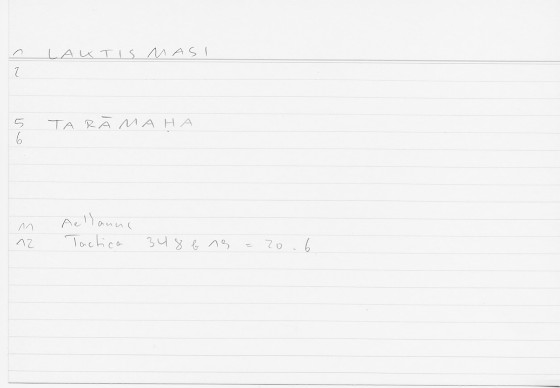 1 LAKTIS MASI
2
5 TA RĀMAḤA
6
11 Aelianus
12 Tactica 348 & 19 = 20.6